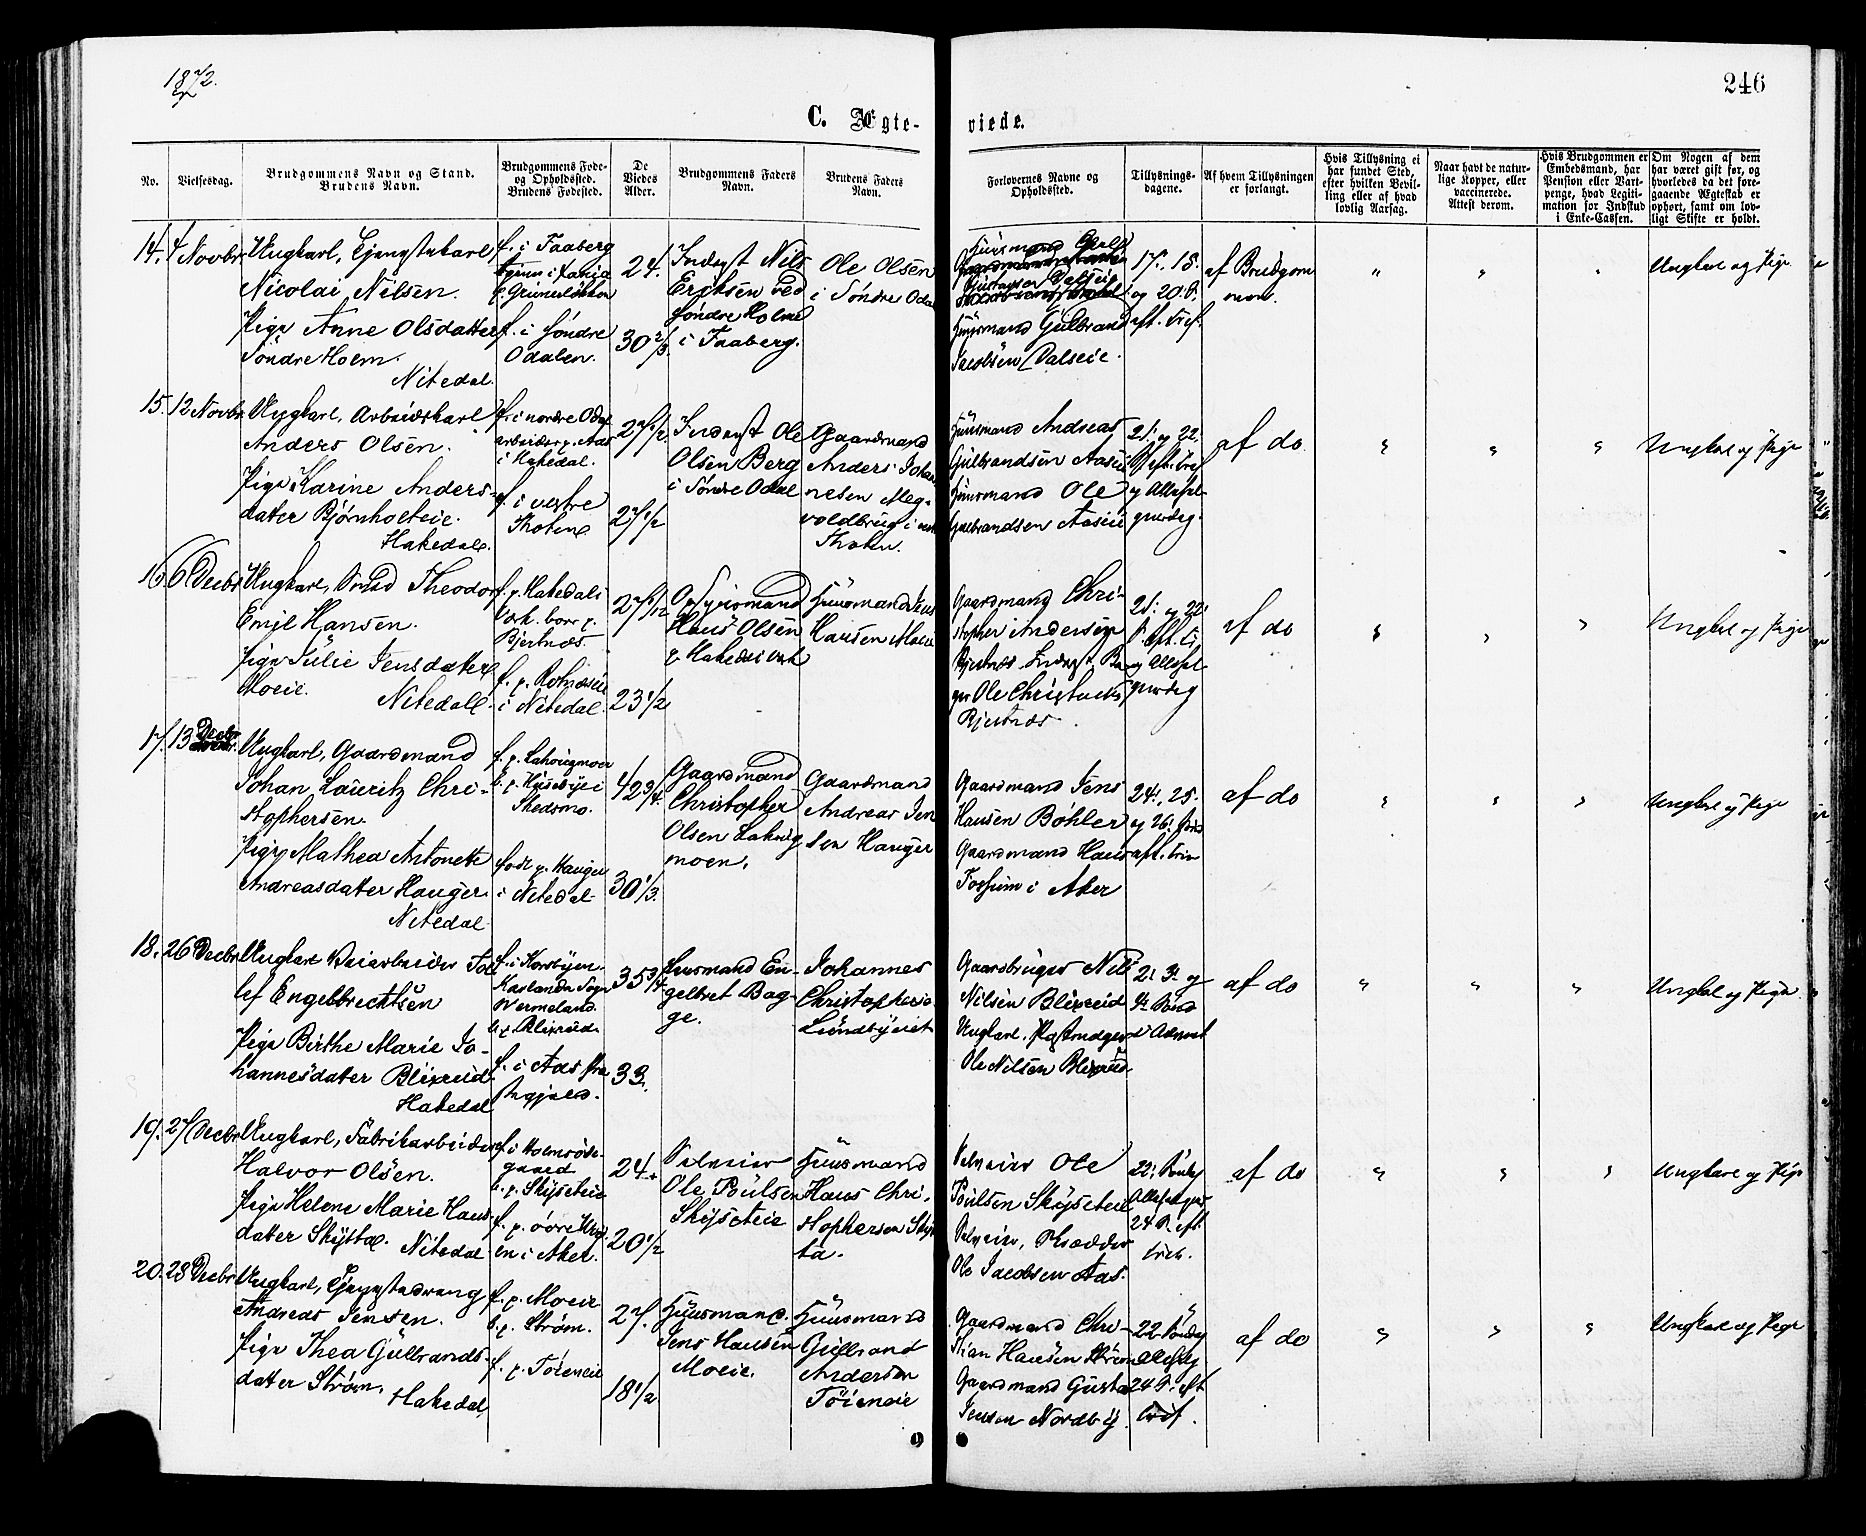 1872.
246
C. Ægte-
viede.
No.
Vielsesdag.
Brudgommens Navn og Stand.
Brudens Navn.
Brudgommens Føde-
og Opholdssted.
Brudens Fødested.
De
Viedes
Alder.
Brudgommens Faders
Navn.
Brudens Faders
Navn.
Forlovernes Navne og
Opholdssted.
Tillysnings-
dagene.
Af hvem Tillysningen
er forlangt.
Hvis Tillysning ei
har fundet Sted,
efter hvilken Bevil-
ling eller af hvad
lovlig Aarsag.
Naar havt de natur-
lige Kopper, eller
vaccinerede.
Attest derom.
Hvis Brudgommen er
Embedsmand, har
Pension eller Vart-
penge, hvad Legiti-
mation for Indskud
i Enke-Cassen.
Om Nogen af dem
har været gift før, og
hvorledes da det fore-
gaaende Ægteskab er
ophørt, samt om lov-
ligt Skifte er holdt.
14. 4 Novbr
Ungkarl, Tjenestekarl
Nicolai Nilsen.
Pige Anne Olsdatter
Søndre Holm.
Nitedal.
f. i Faaberg
f. i Søndre
Odalen.
24.
30 2/3.
Inderst Nils
Eriksen ved
søndre Holme
i Faaberg.
Ole Olsen
i Søndre Odal
Huusmand
Huusmand Gulbrand
Jacobsen Dalseie.
17., 18.
og 20. S.
eft. tref.
af Brudgom
men.
" " "
Ungkarl og Pige
15. 12 Novbr.
Ungkarl, Arbeidskarl
Anders Olsen.
Pige Karine Anders-
dater Bjørnholteie.
Hakedal.
f. i nordre Odal
arbeider p. Aas
i Hakedal.
f. i vestre
Thoten
27 1/2.
27 1/2
Inderst Ole
Olsen Berg
i Søndre Odal
Gaardmand
Anders Johan
nesen
i vest
Thoten.
Huusmand Andreas
Gulbrandsen Aaseie
Huusmand Ole
Gulbrandsen Aaseie
21. og 22.
S. eft. tref
og Allehel-
gensdag.
af do
" " "
Ungkarl og Pige
16. 6 Decbr
Ungkarl, Smed Theodor
Emil Hansen.
Pige Julie Jensdatter
Moeie.
Nitedal.
f. p. Hakedals
Værk. boer p.
Bjertnæs.
f. p. Rotnæseie
i Nitedal.
27 1/12
23 1/2
Opsynsmand
Hans Olsen
p. Hakedalsværk
Huusmand Jens
Hansen Moeie
Gaardmand Chri-
stopher Andersen
Bjertnæs.
Bjertnæs.
21. og 22.
S. eft. tr.
og Allehel-
gensdag
af do
" " "
Ungkarl og Pige
17. 13 Decbr
Ungkarl, Gaardmand
Johan Lauritz Chri-
stophersen.
Pige Mathea Antonette
Andreasdater Hauger.
Nitedal.
f. p. Lahaugmoen
b. p. Huseby i
Skedsmo.
født p. Hauger
i Nitedal.
42 3/4.
30 1/3.
Gaardmand
Christopher
Olsen Lahaug
moen.
Gaardmand
Andreas Jen
sen Hauger
Gaardmand Jens
Hansen Bøhler
Gaardmand Hans
Fossum i Aker
24., 25.
og 26. Sønd
eft. trin
af do
" " "
Ungkarl og Pige
18. 26 Decbr
Ungkarl Veiarbeider Tol
lef Engelbrechtsen
Pige Birthe Marie Jo-
hannesdater Blixrud.
Hakedal
f. i Korsbyen
Karlanda Sogn
Wermeland.
b. p. Blixrud.
35 3/4
33.
Huusmand En-
gelbret Bag-
ge.
Johannes
Christophersen
Lundbyeiet
Gaardbruger Nils
Nilsen Blixrud
Ungkarl,
Ole Nilsen Blixrud
2. 3. og
4. Sønd
i Advent
af do
" " "
Ungkarl og Pige.
19. 27 Decbr
Ungkarl, Fabrikarbeider
Halvor Olsen.
Pige Helene Marie Hans-
dater Skytta. Nitedal
b. p. Skyseteie
en i Aker.
24.
20 1/2
Selveier
Ole Poulsen
Skyseteie
Huusmand
Hans Chri-
stophersen Skyt
ta.
Selveier Ole
Poulsen Skyseteie
Selveier, Skrædder
Ole Jacobsen Aas.
22. Søndag
24 S. eft
trin.
af do
" " "
Ungkarl og Pige
20. 28 Decbr
Ungkarl, Tjenestedreng
Andreas Jensen.
Pige Thea Gulbrands-
dater Strøm.
Hakedal
f. p. Moeie
b. p. Strøm.
f. p. Tøieneie
27.
18 1/2
Huusmand.
Jens Hansen
Moeie.
Huusmand
Gulbrand
Andersen
Tøieneie
Gaardmand Chri-
stian Hansen Strøm
Gaardmand Gustav
Jensen Nordby.
22 Søndag
24 S. eft
tref.
af do
" " "
Ungkarl og Pige